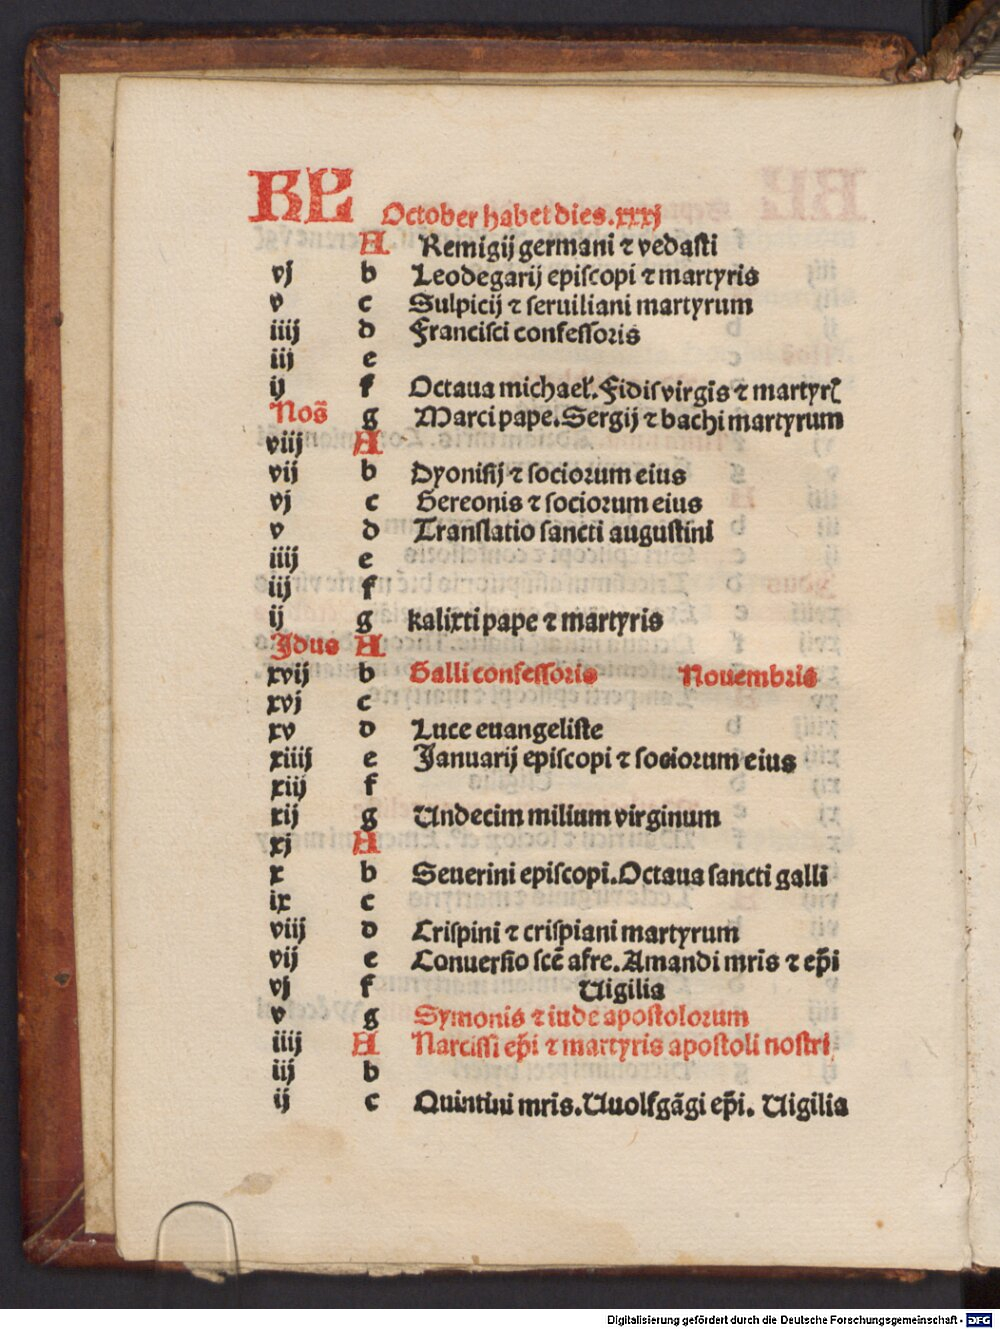 KL October habet dies.xxxj
A Remigij germani ⁊ vedasti
vj b Leodegarij episcopi ⁊ martyris
v c Sulpicij ⁊ seruiliani martyrum
iiij d Francisci confessoris
iij e
ij f Octaua michael̕.Fidis virgīs ⁊ martyrꝭ
Noñ g Marci pape.Sergij ⁊ bachi martyrum
viij A
vij b Dyonisij ⁊ sociorum eius
vj c Gereonis ⁊ sociorum eius
v d Translatio sancti augustini
iiij e
iij f
ij g kalixti pape ⁊ martyris
Jdus A
xvij b Galli confessoris Nouembris
xvj c
xv d Luce euangeliste
xiiij e Januarij episcopi ⁊ sociorum eius
xiij f
xij g Undecim milium virginum
xj A
x b Seuerini episcopi.Octaua sancti galli
ix c
viij d Crispini ⁊ crispiani martyrum
vij e Conuersio scē afre.Amandi mris ⁊ ep̄i
vj f Uigilia
v g Symonis ⁊ iude apostolorum
iiij A Narcissi ep̄i ⁊ martyris apostoli nostri
iij b
ij c Quintini mris.Uuolfgāgi ep̄i. Uigilia
Digitalisierung gefördert durch die Deutsche Forschungsgemeinschaft - DFG